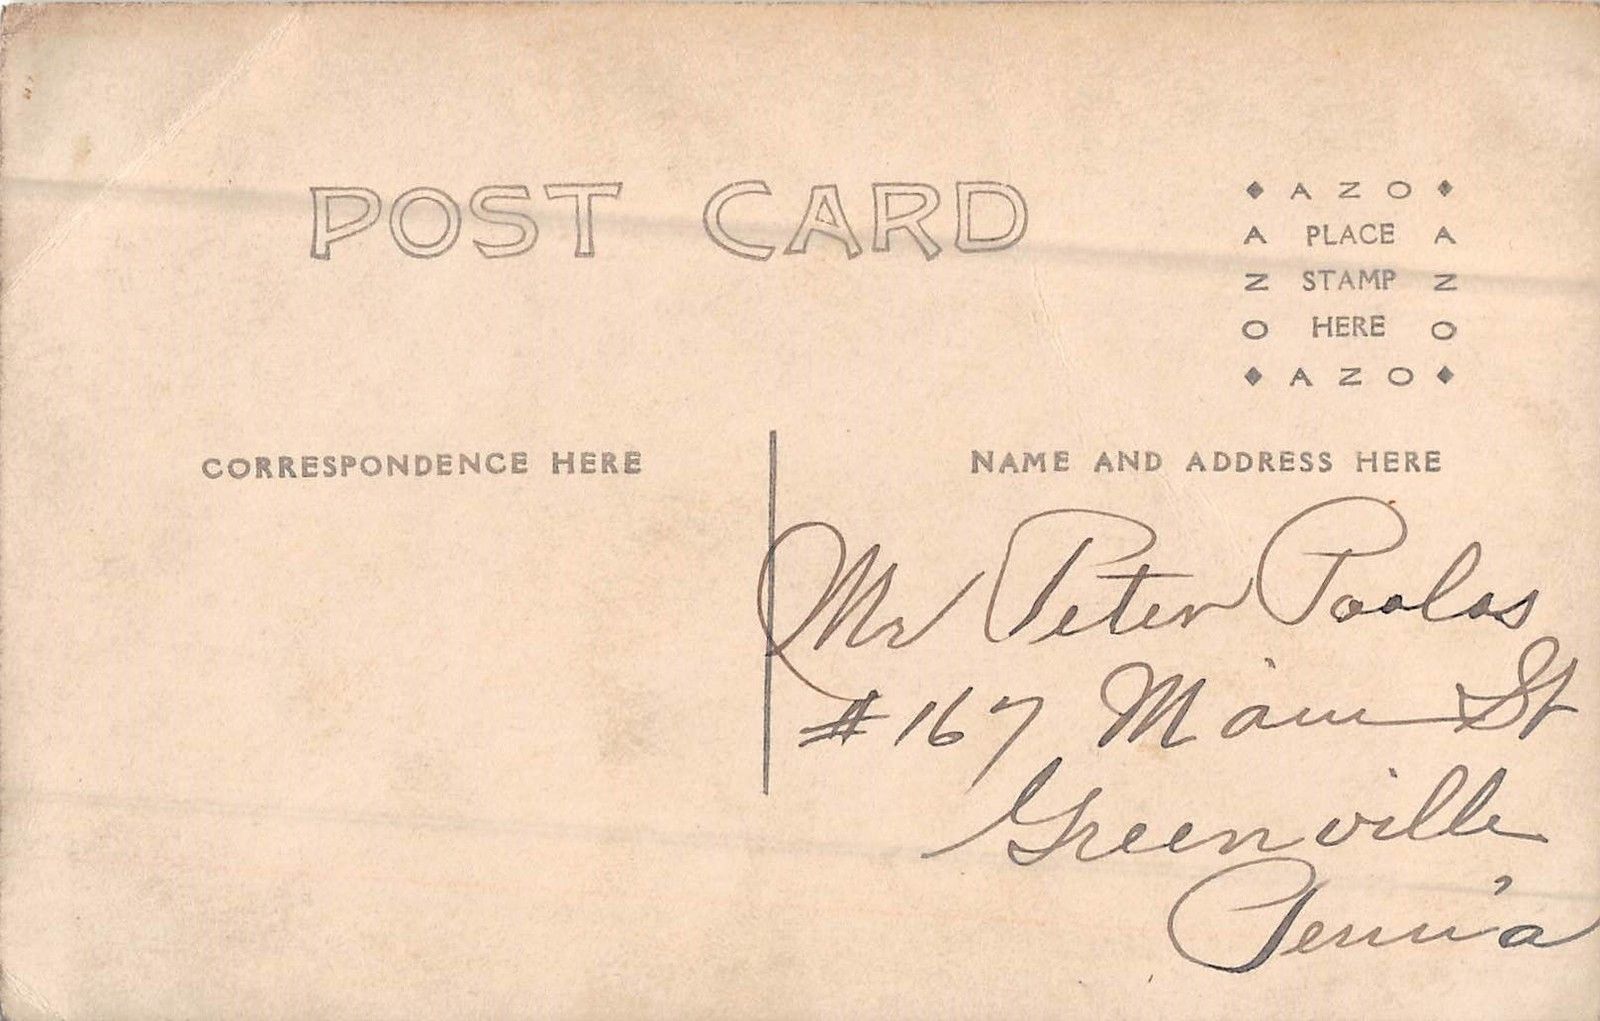 POST CARD
♦ A Z O ♦
A PLACE A
Z STAMP Z
O HERE O
♦ A Z O ♦
CORRESPONDENCE HERE
NAME AND ADDRESS HERE
Mr Peter Poolos
# 167 Main St
Greenville
Penn'a